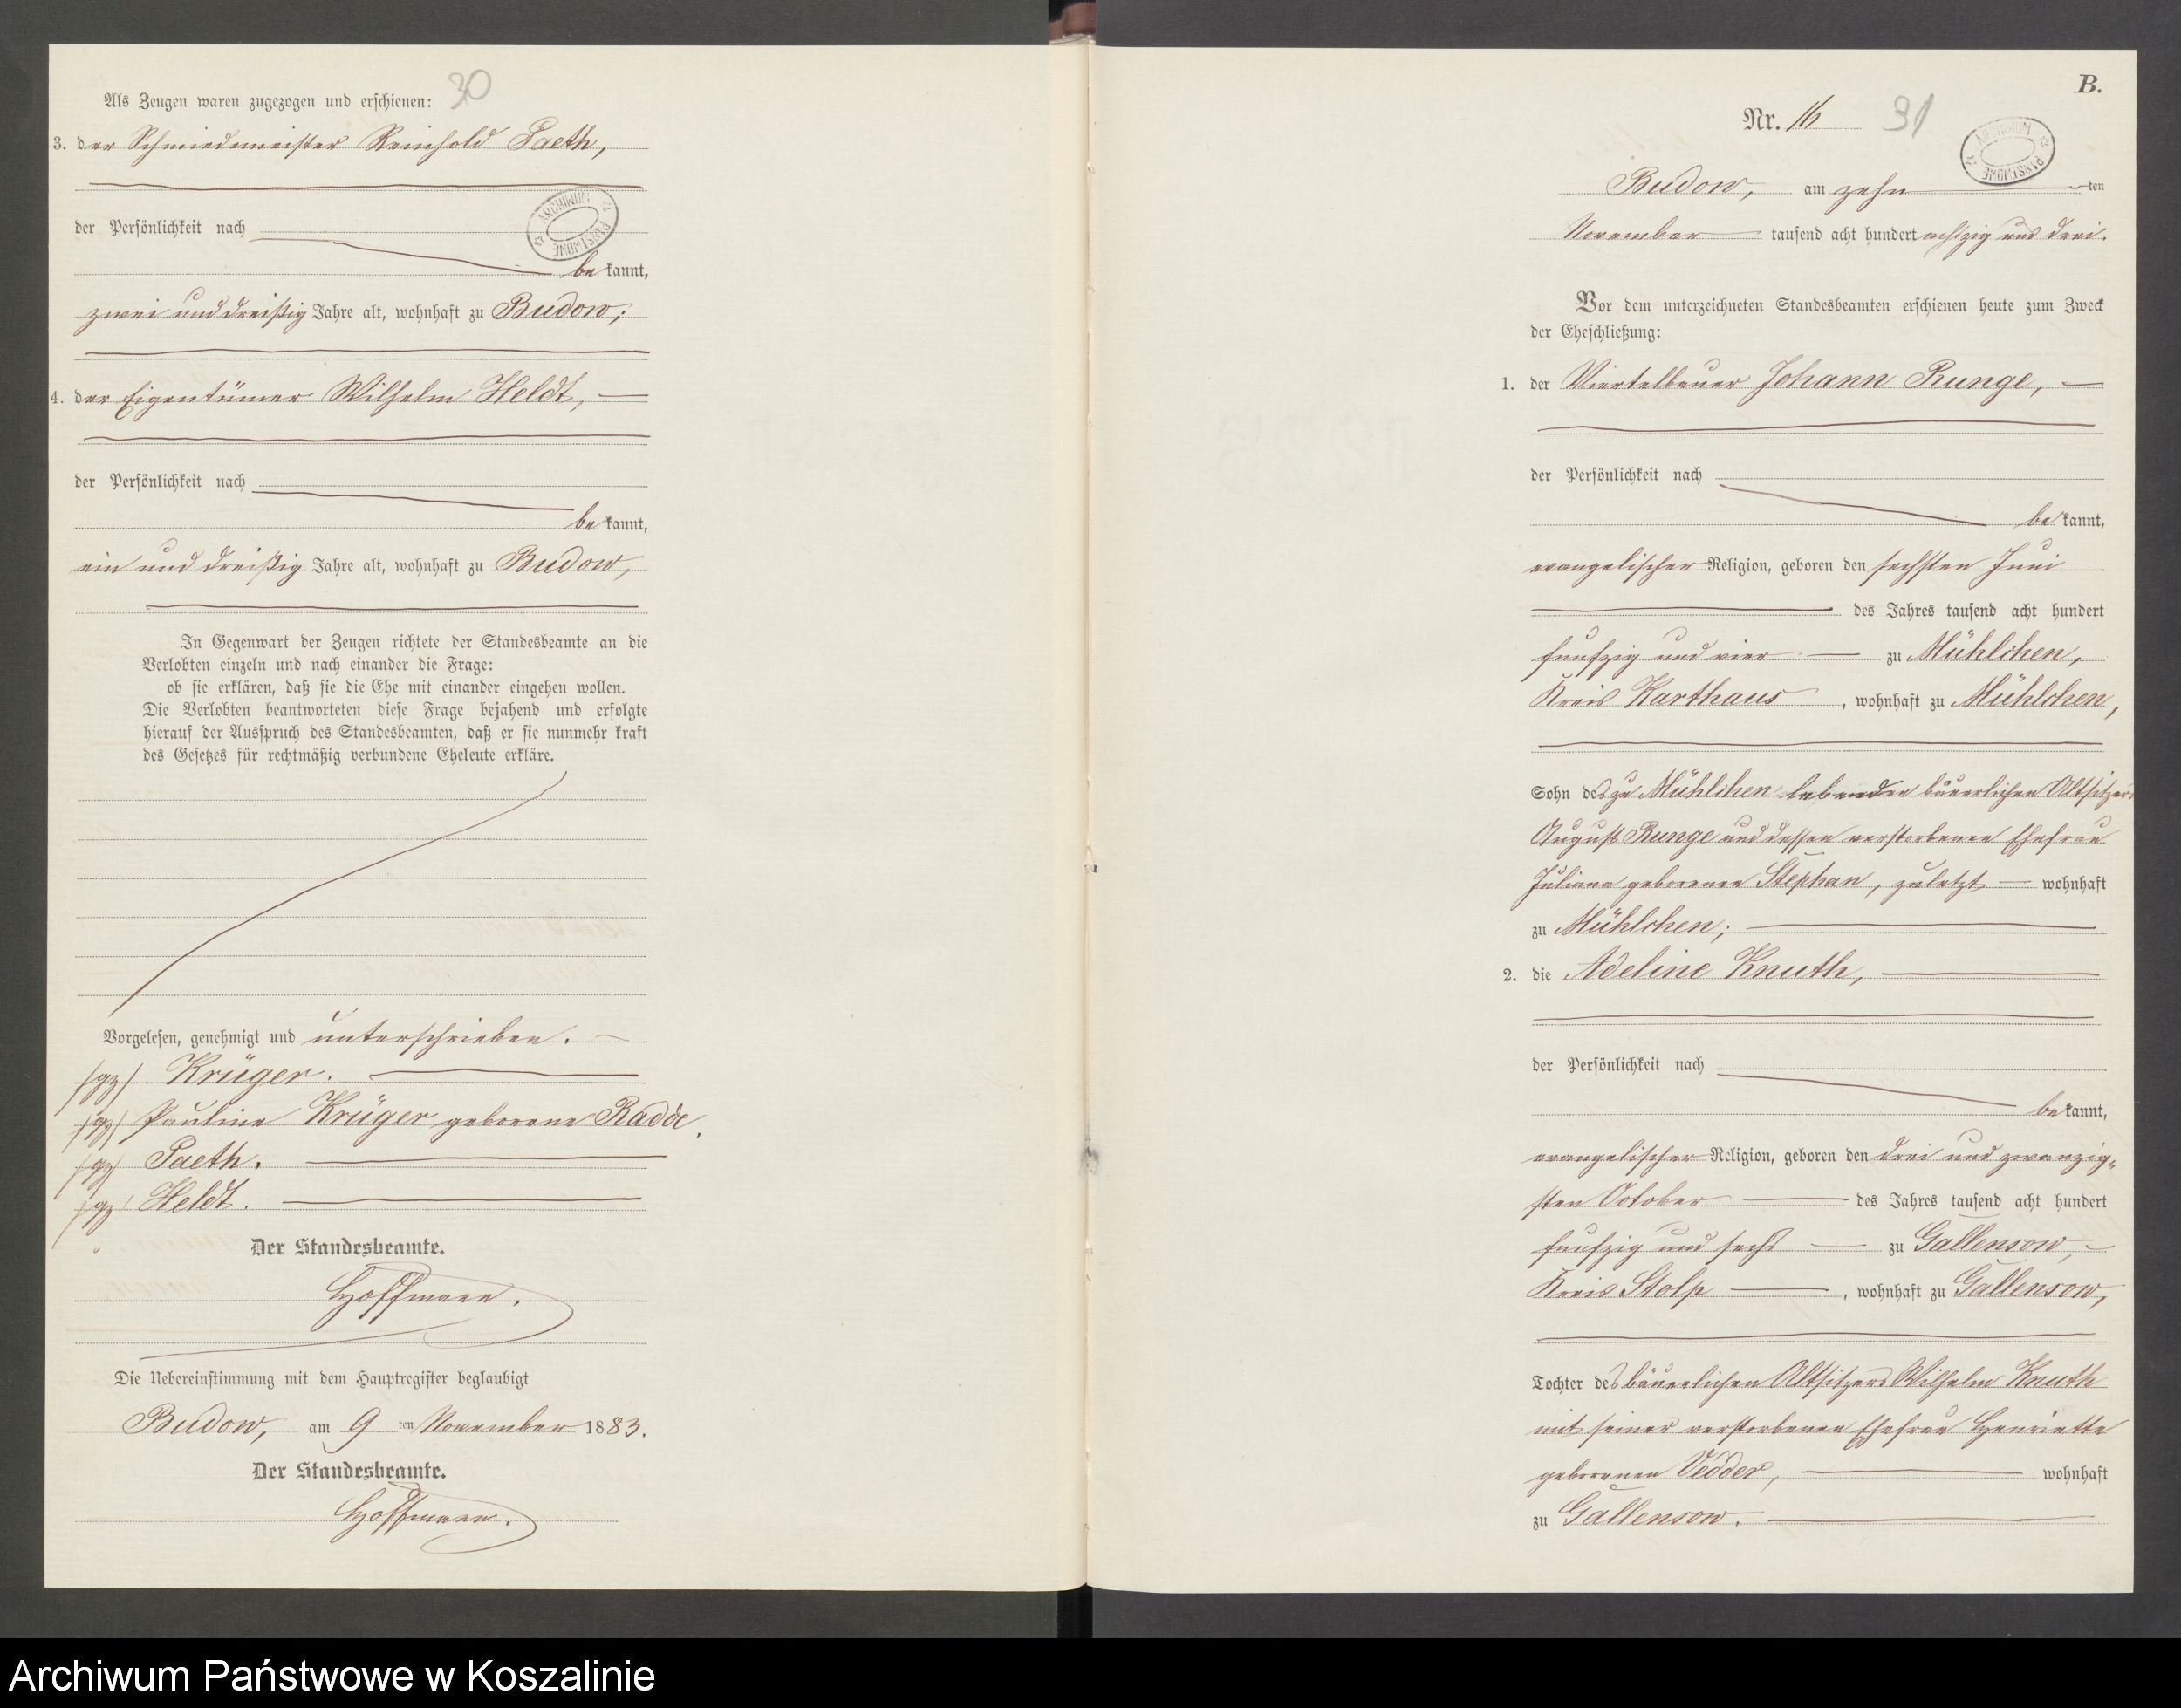 30
Als Zeugen waren zugezogen und erschienen:
3. der Schmiedemeister Reinhold Paeth,
der Persönlichkeit nach
bekannt,
zwei und dreißig Jahre alt, wohnhaft zu Budow;
4. der Eigentümer Wilhelm Heldt,
der Persönlichkeit nach
bekannt,
ein und dreißig Jahre alt, wohnhaft zu Budow,
In Gegenwart der Zeugen richtete der Standesbeamte an die
Verlobten einzeln und nach einander die Frage:
ob sie erklären, daß sie die Ehe mit einander eingehen wollen.
Die Verlobten beantworteten diese Frage bejahend und erfolgte
hierauf der Ausspruch des Standesbeamten, daß er sie nunmehr kraft
des Gesetzes für rechtmäßig verbundene Eheleute erkläre.
Vorgelesen, genehmigt und unterschrieben.
(gz) Krüger.
(gz) Pauline Krüger geborene Radde.
(gz) Paeth.
(gz) Heldt.
Der Standesbeamte.
Hoffmann.
Die Uebereinstimmung mit dem Hauptregister beglaubigt
Budow, am 9 ten November 1883.
Der Standesbeamte.
Hoffmann.
ARCHIWUM PAŃSTWOWE
B.
Nr. 16 31
ARCHIWUM PAŃSTWOWE
Budow, am zehn ten
November tausend acht hundert achtzig und drei.
Vor dem unterzeichneten Standesbeamten erschienen heute zum Zweck
der Eheschließung:
1. der Viertelbauer Johann Runge,
der Persönlichkeit nach
bekannt,
evangelischer Religion, geboren den sechsten Juni
des Jahres tausend acht hundert
funfzig und vier zu Mühlchen,
Kreis Karthaus, wohnhaft zu Mühlchen,
Sohn des zu Mühlchen lebenden bäuerlichen Altsitzers
August Runge und dessen verstorbenen Ehefrau
Juliane geborenen Stephan, zuletzt wohnhaft
zu Mühlchen;
2. die Adeline Knuth,
der Persönlichkeit nach
bekannt,
evangelischer Religion, geboren den drei und zwanzig-
sten October des Jahres tausend acht hundert
funfzig und sechs zu Gallensow,
Kreis Stolp, wohnhaft zu Gallensow,
Tochter des bäuerlichen Altsitzers Wilhelm Knuth
mit seiner verstorbenen Ehefrau Henriette
geborenen Vedder, wohnhaft
zu Gallensow.
Archiwum Państwowe w Koszalinie